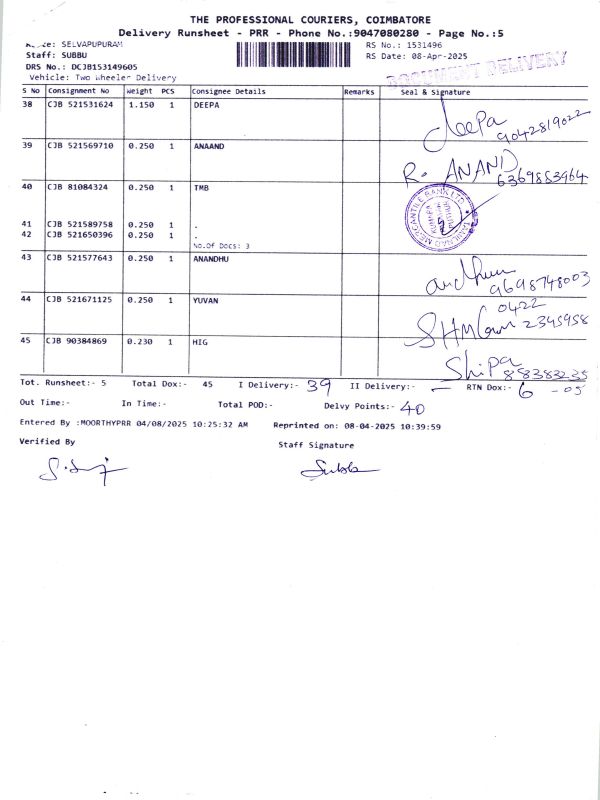 THE PROFESSIONAL COURIERS, COIMBATORE
Delivery Runsheet - PRR - Phone No.:9047080280 - Page No.:5
SELVAPUPURAM RS No.: 1531496
Staff: SUBBU RS Date: 08-Apr-2025
DRS No.: DCJB153149605 DOCUMENT DELIVERY
Vehicle: Two Wheeler Delivery
S No Consignment No Weight PCS Consignee Details Remarks Seal & Signature
38 CJB 521531624 1.150 1 DEEPA Deepa
9042819022
39 CJB 521569710 0.250 1 ANAAND R. ANAND
6369853964
40 CJB 81084324 0.250 1 TMB
41 CJB 521589758 0.250 1 .
42 CJB 521650396 0.250 1 .
No.Of Docs: 3
43 CJB 521577643 0.250 1 ANANDHU
9698748003
44 CJB 521671125 0.250 1 YUVAN 0422
2345958
45 CJB 90384869 0.230 1 HIG Shipa
858383235
Tot. Runsheet:- 5 Total Dox:- 45 I Delivery:- 39 II Delivery:- — RTN Dox:- 6 -05
Out Time:- In Time:- Total POD:- Delvy Points:- 40
Entered By :MOORTHYPRR 04/08/2025 10:25:32 AM Reprinted on: 08-04-2025 10:39:59
Verified By Staff Signature
Subbu